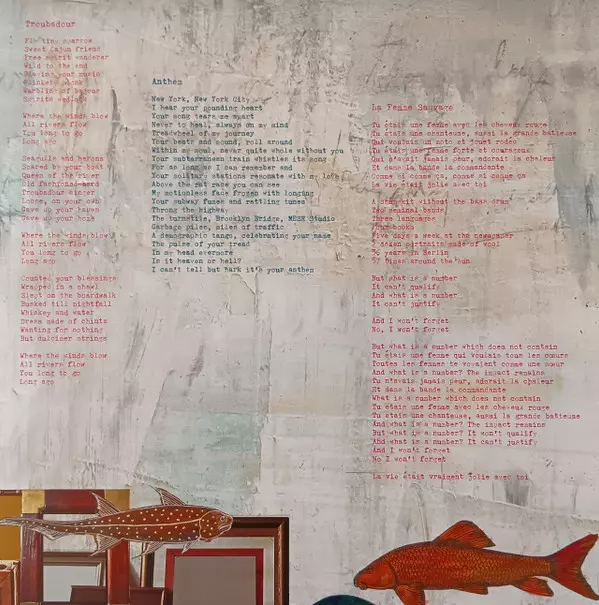 Troubadour
Sweet Cajun friend
Free spirit wanderer
Wild to the end
your music
Where the winds blow
All rivers flow
You long to go
Long ago
Seagulls and herons
by your boat
Queen of the river
Old fashioned
Troubadour singer
Loose, on your own
Gave up your
Gave up your home
Where the winds blow
All rivers flow
You long to go
Long ago
Counted your blessings
Wrapped in a shawl
Slept on the boardwalk
Busked till nightfall
Whiskey and water
Dress made of chintz
Wanting for nothing
But dulcimer strings
Where the winds blow
All rivers flow
You long to go
Long ago
Anthem
New York, New York City
I hear your pounding heart
Your song tears me apart
Never to heal, always on my mind
Treadwheel of my journey
Your beats and sound, roll around
Within my soul, never quite whole without you
Your subterranean train whistles its song
For as long as I can remember and
Your solitary stations resonate with my love
Above the rat race you can see
My motionless face frozen with longing
Your subway fumes and rattling tunes
Throng the highway
The turnstile, Brooklyn Bridge, MESH Studio
Garbage piles, piles of traffic
A demographic tango, celebrating your name
The pulse of your tread
In my head evermore
Is it heaven or hell?
I can't tell but hark it's your anthem
La Femme Sauvage
Tu étais une femme avec les cheveux rouge
Tu étais une chanteuse, aussi la grande batteuse
Qui voulais un moto et jouet rodéo
Tu étais une femme forte et courageux
Qui n'avait jamais peur, adorait la chaleur
Et dans la bande la commandante
Comme si comme ça, comme si comme ça
La vie était jolie avec toi
A drum kit without the bass drum
Two seminal bands
Three languages
Four books
Five days a week at the newspaper
portraits made of wool
years in Berlin
57 times around the sun
But what is a number
It can't qualify
And what is a number
It can't justify
And I won't forget
No, I won't forget
But what is a number which does not contain
Tu étais une femme qui voulais tous les cœurs
Toutes les femmes te voyaient comme une sœur
And what is a number? The impact remains
Tu n'avais jamais peur, adorait la chaleur
Et dans la bande la commandante
What is a number which does not contain
Tu étais une femme avec les cheveux rouge
Tu étais une chanteuse, aussi la grande batteuse
And what is a number? The impact remains
But what is a number? It won't qualify
And what is a number? It can't justify
And I won't forget
No I won't forget
La vie était vraiment jolie avec toi